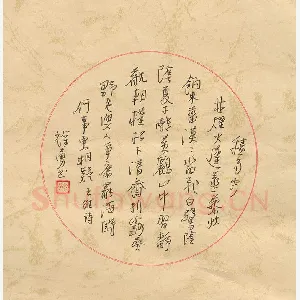 積雨空
林煙火遲蒸藜炊黍
餉東菑漠漠水田飛白鷺陰
陰夏木囀黃鸝山中習靜
觀朝槿松下清齋折露葵
野老與人爭席罷海鷗
何事更相疑王維詩